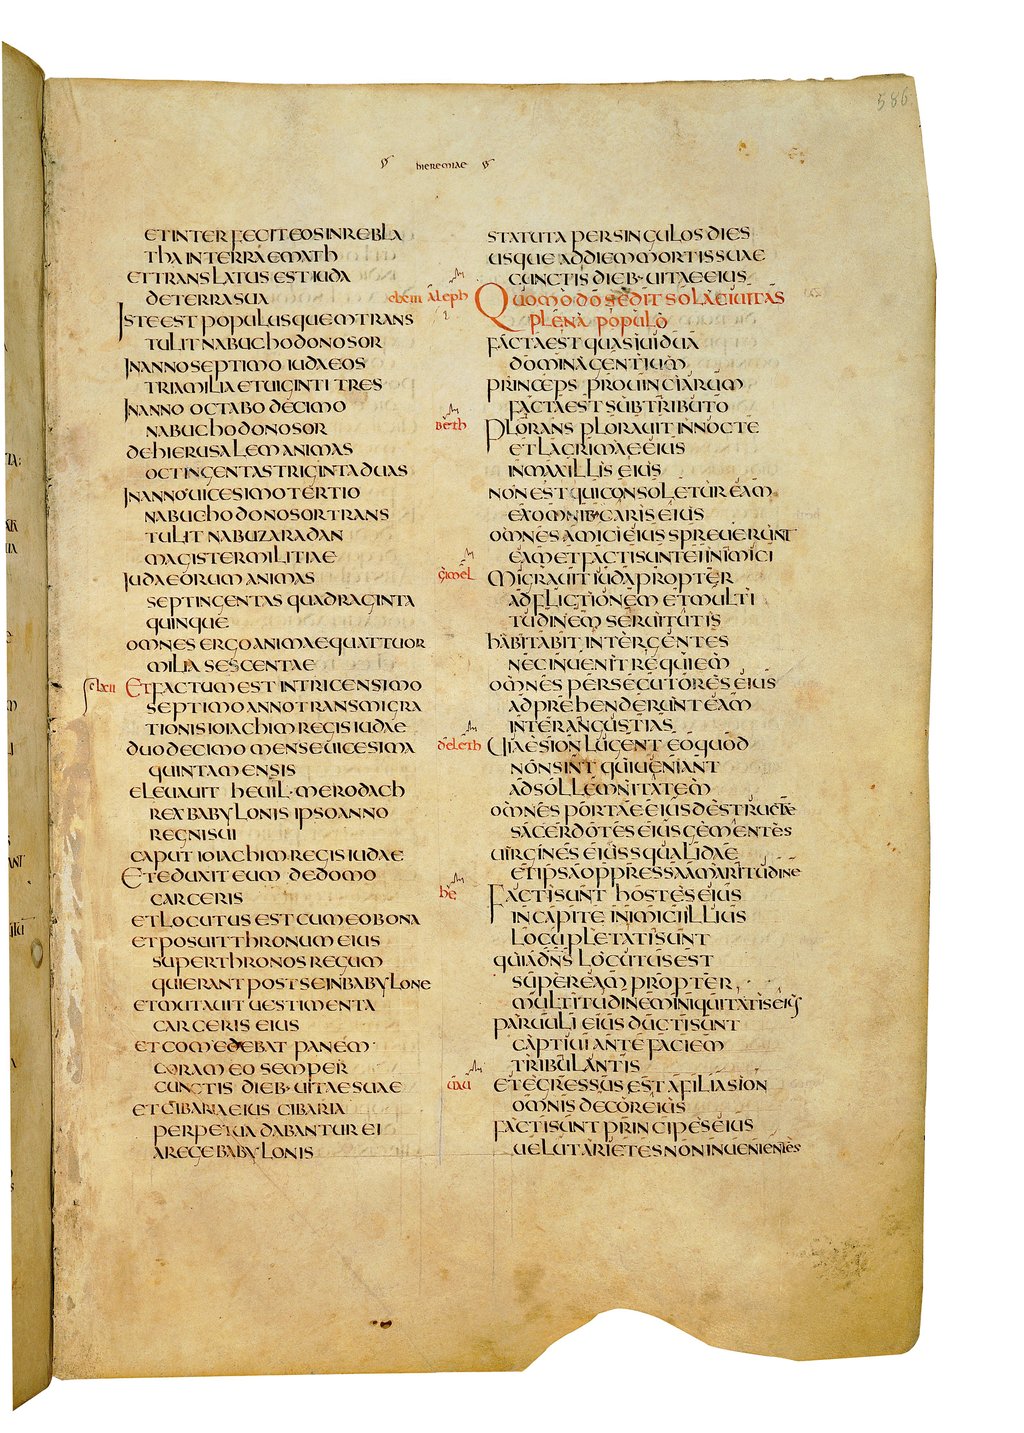 586
hieremiae
et interfecit eos in rebla
tha in terra emath
et translatus est iuda
de terra sua
Iste est populus quem trans
tulit nabuchodonosor
In anno septimo iudaeos
tria milia et uiginti tres
In anno octabo decimo
nabuchodonosor
de hierusalem animas
octingentas triginta duas
In anno uicesimo tertio
nabuchodonosor trans
tulit nabuzaradan
magister militiae
Iudaeorum animas
septingentas quadraginta
quinque
omnes ergo animae quattuor
milia sescentae
clxii Et factum est in tricensimo
septimo anno transmigra
tionis ioiachim regis iudae
duodecimo mense uicesima
quinta mensis
eleuauit heuil·merodach
rex babylonis ipso anno
regni sui
caput ioiachim regis iudae
Et eduxit eum de domo
carceris
et locutus est cum eo bona
et posuit thronum eius
super thronos regum
qui erant post se in babylone
et mutauit uestimenta
carceris eius
et comedebat panem
coram eo semper
cunctis dieb· uitae suae
et cibaria eius cibaria
perpetua dabantur ei
a rege babylonis
statuta per singulos dies
usque ad diem mortis suae
cunctis dieb· uitae eius
aleph Quomodo sedit sola ciuitas
plena populo
facta est quasi uidua
domina gentium
princeps prouinciarum
facta est sub tributo
beth Plorans plorauit in nocte
et lacrimae eius
in maxillis eius
non est qui consoletur eam
ex omnib· caris eius
omnes amici eius spreuerunt
eam et facti sunt ei inimici
gimel Migrauit iuda propter
adflictionem et multi
tudinem seruitutis
habitabit inter gentes
nec inuenit requiem
omnes persecutores eius
adprehenderunt eam
inter angustias
deleth Uiae sion lugent eo quod
non sint qui ueniant
ad sollemnitatem
omnes portae eius destructe
sacerdotes eius gementes
uirgines eius squalidae
et ipsa oppressa amaritudine
he Facti sunt hostes eius
in capite inimici illius
locupletati sunt
quia dns locutus est
super eam propter
multitudinem iniquitatis eius
paruuli eius ducti sunt
captiui ante faciem
tribulantis
uau et egressus est a filia sion
omnis decor eius
facti sunt principes eius
uelut arietes non inuenientes